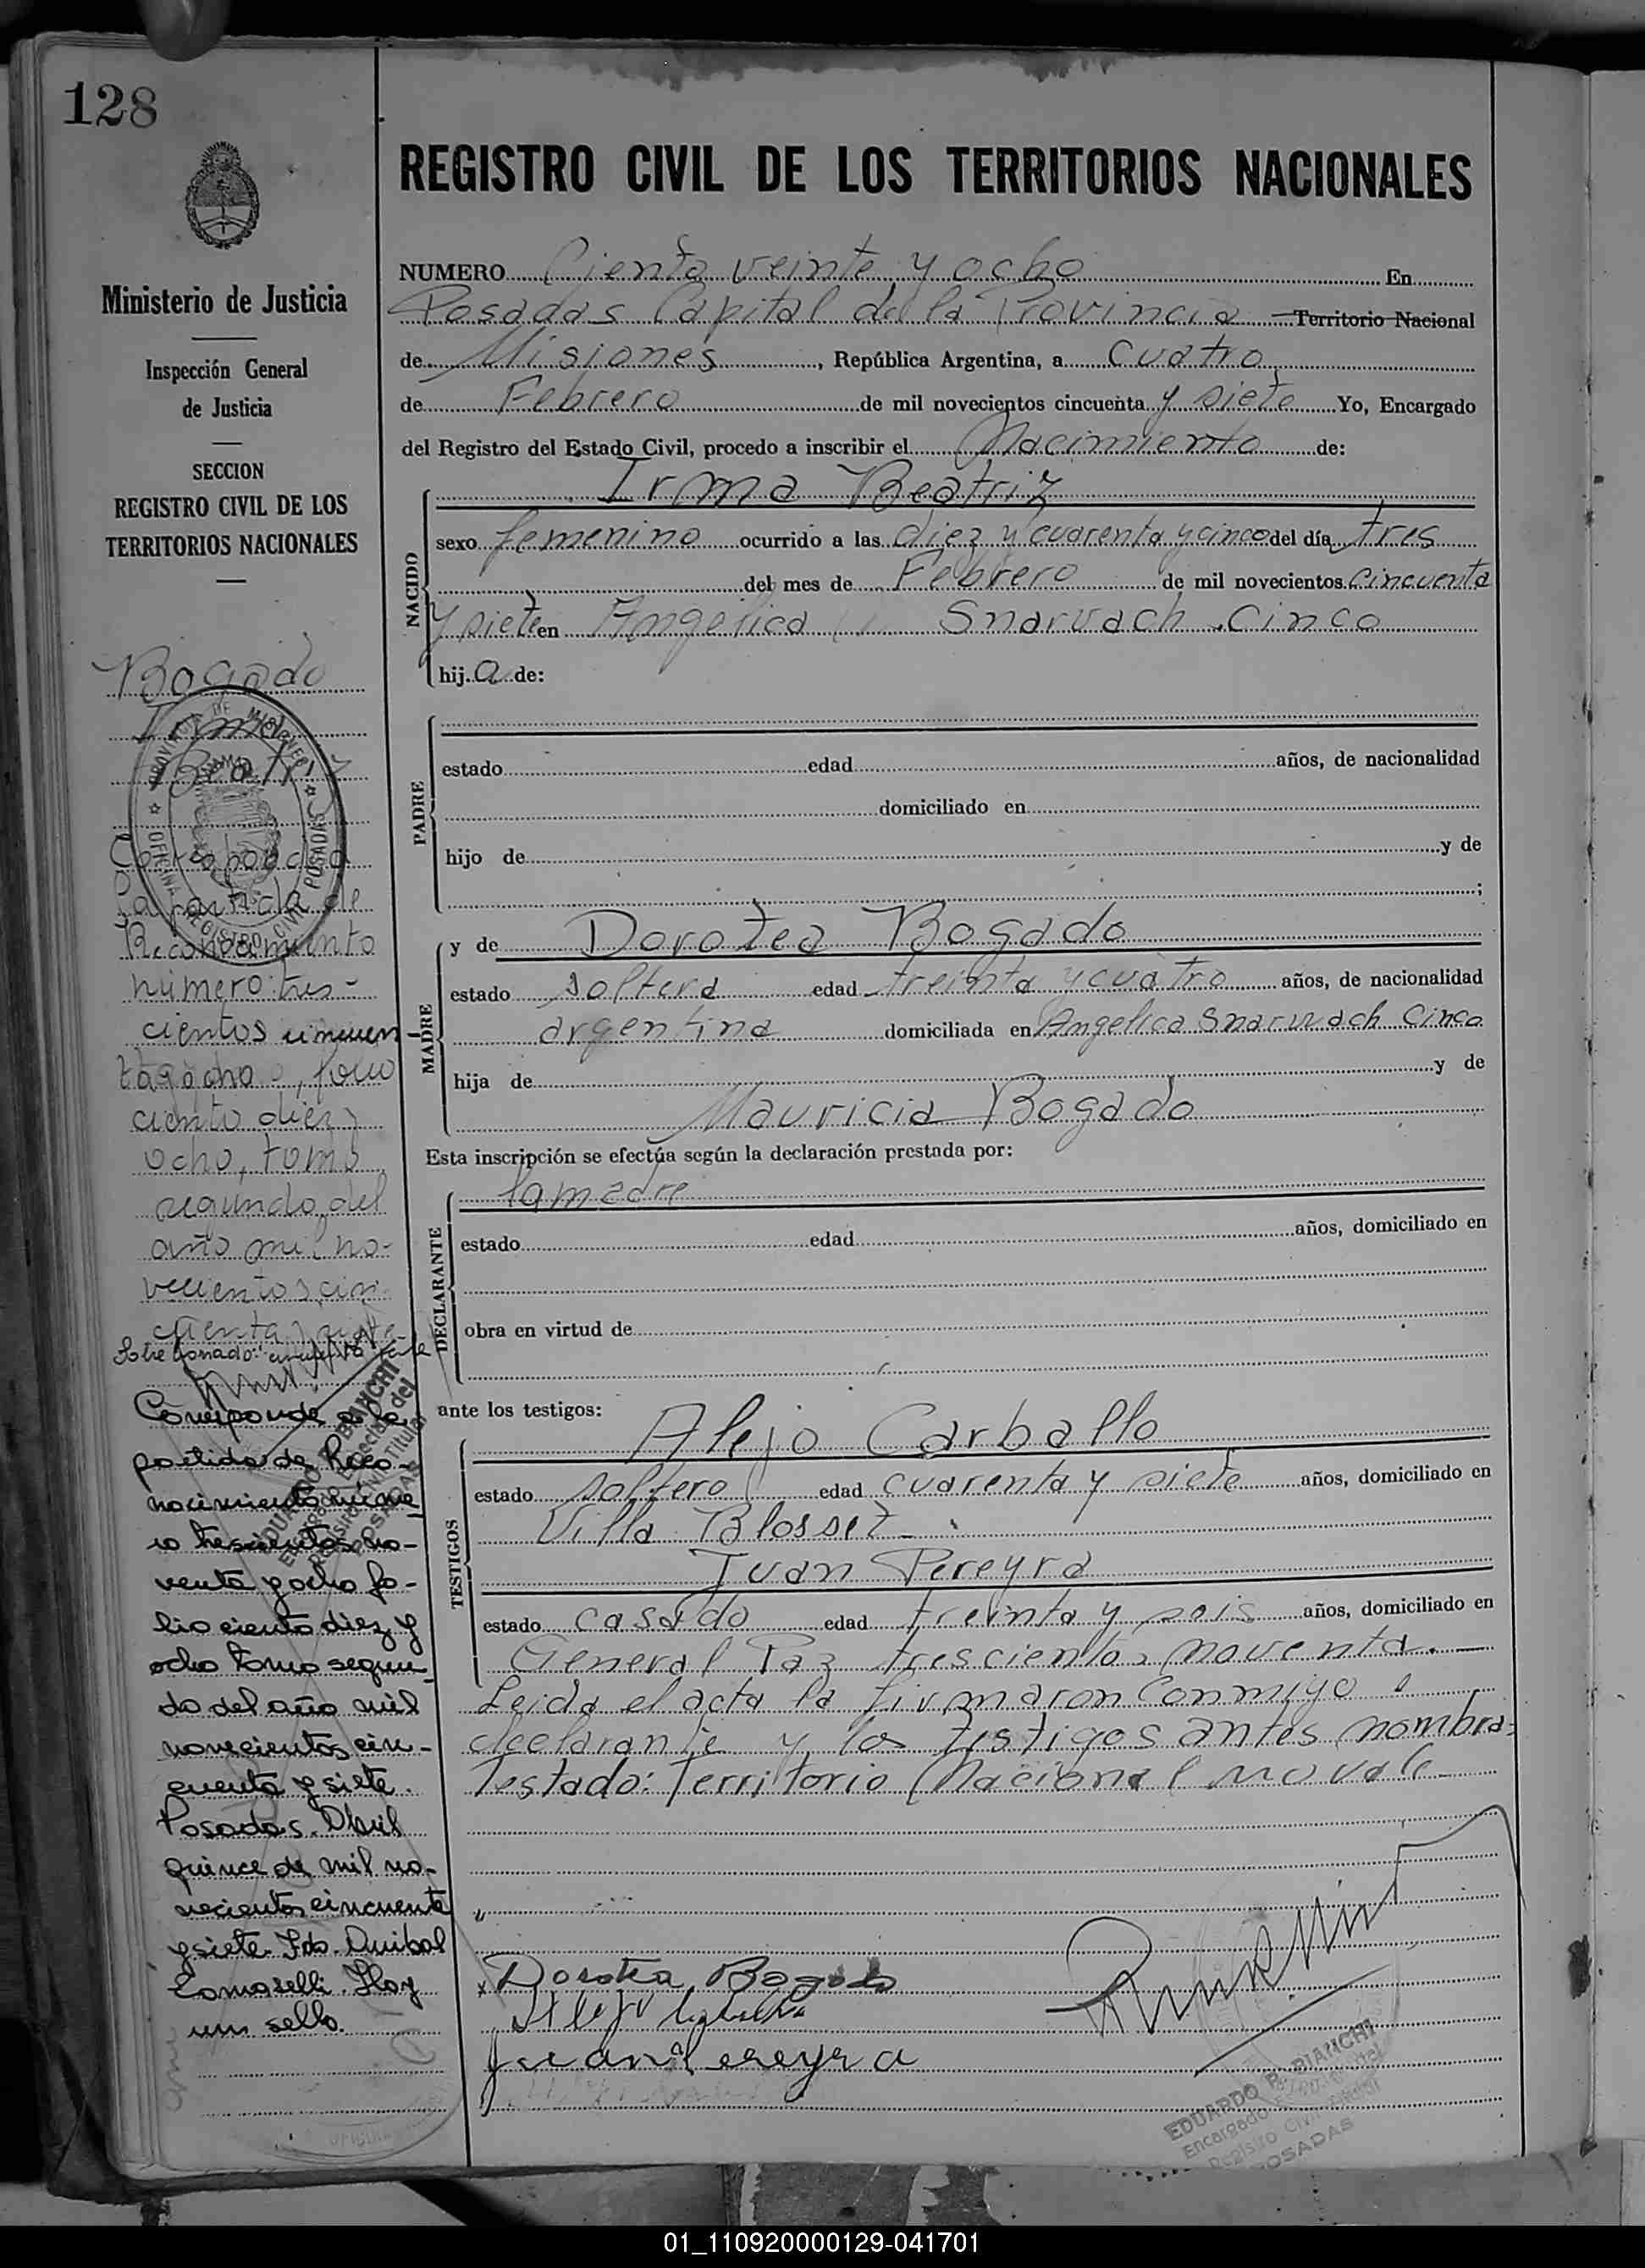 128
Ministerio de Justicia
Inspección General
de Justicia
SECCION
REGISTRO CIVIL DE LOS
TERRITORIOS NACIONALES
Bogado
Irma
Beatriz
Corresponde a
la partida de
Reconocimiento
número: tres-
cientos
ocho, folio
ciento diez y
ocho, tomo
segundo, del
año mil no-
vecientos cin-
cuenta y siete-
Corresponde a la
partida de Reco-
nocimiento núme
ro trescientos no-
venta y ocho fo-
lio ciento diez y
ocho tomo segun
do del año mil
novecientos cin-
cuenta y siete.
Posadas. Abril
quince de mil no-
vecientos cincuenta
y siete. Fdo. Anibal
Comoselli. Hay
un sello.
REGISTRO CIVIL DE LOS TERRITORIOS NACIONALES
NUMERO Ciento veinte y ocho En
Posadas Capital de la Provincia Territorio Nacional
de Misiones, República Argentina, a cuatro
de Febrero de mil novecientos cincuenta y siete Yo, Encargado
del Registro del Estado Civil, procedo a inscribir el Nacimiento de:
NACIDO
Irma Beatriz
sexo femenino ocurrido a las diez y cuarenta y cinco del día tres
del mes de Febrero de mil novecientos cincuenta
y siete en Angelica Snarvach Cinco
hija de:
PADRE
estado edad años, de nacionalidad
domiciliado en
hijo de y de
;
MADRE
y de Dorotea Bogado
estado soltera edad treinta y cuatro años, de nacionalidad
argentina domiciliada en Angelica Snarvach Cinco
hija de y de
Mauricia Bogado
Esta inscripción se efectúa según la declaración prestada por:
DECLARANTE
la madre
estado edad años, domiciliado en
obra en virtud de
ante los testigos:
TESTIGOS
Alejo Carballo
estado soltero edad cuarenta y siete años, domiciliado en
Villa Blosset-
Juan Pereyra
estado casado edad treinta y seis años, domiciliado en
General Paz trescientos noventa.
Leida el acta la firmaron conmigo
declarante y los testigos antes nombra=
Testado: Territorio Nacional no vale
Dorotea Bogado
Juan Pereyra
EDUARDO R. BIANCHI
Encargado
Registro Civil
POSADAS
01_110920000129-041701